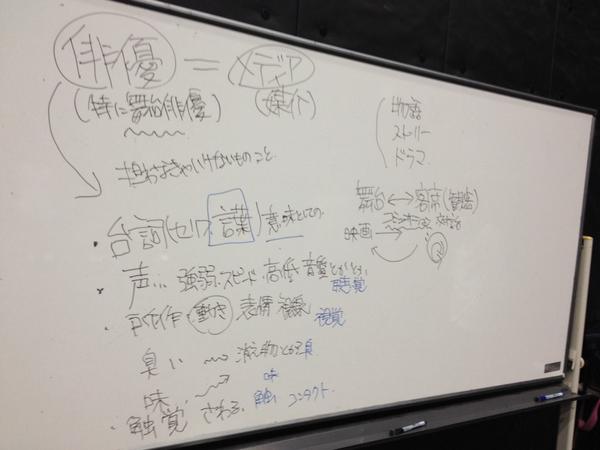 俳優 = メディア
(特に舞台俳優) (媒介)
物語
ストーリー
ドラマ
担わなきゃいけないものこと
舞台 ↔ 客席(観客)
映画
・台詞(セリフ、言葉)意味としての
・声... 強弱、スピード、高低、音質とかとか
聴覚
・所作 動き 表情 視線
視覚
臭い 消え物とか 臭
味 味
・触覚 さわる、触い コンタクト.